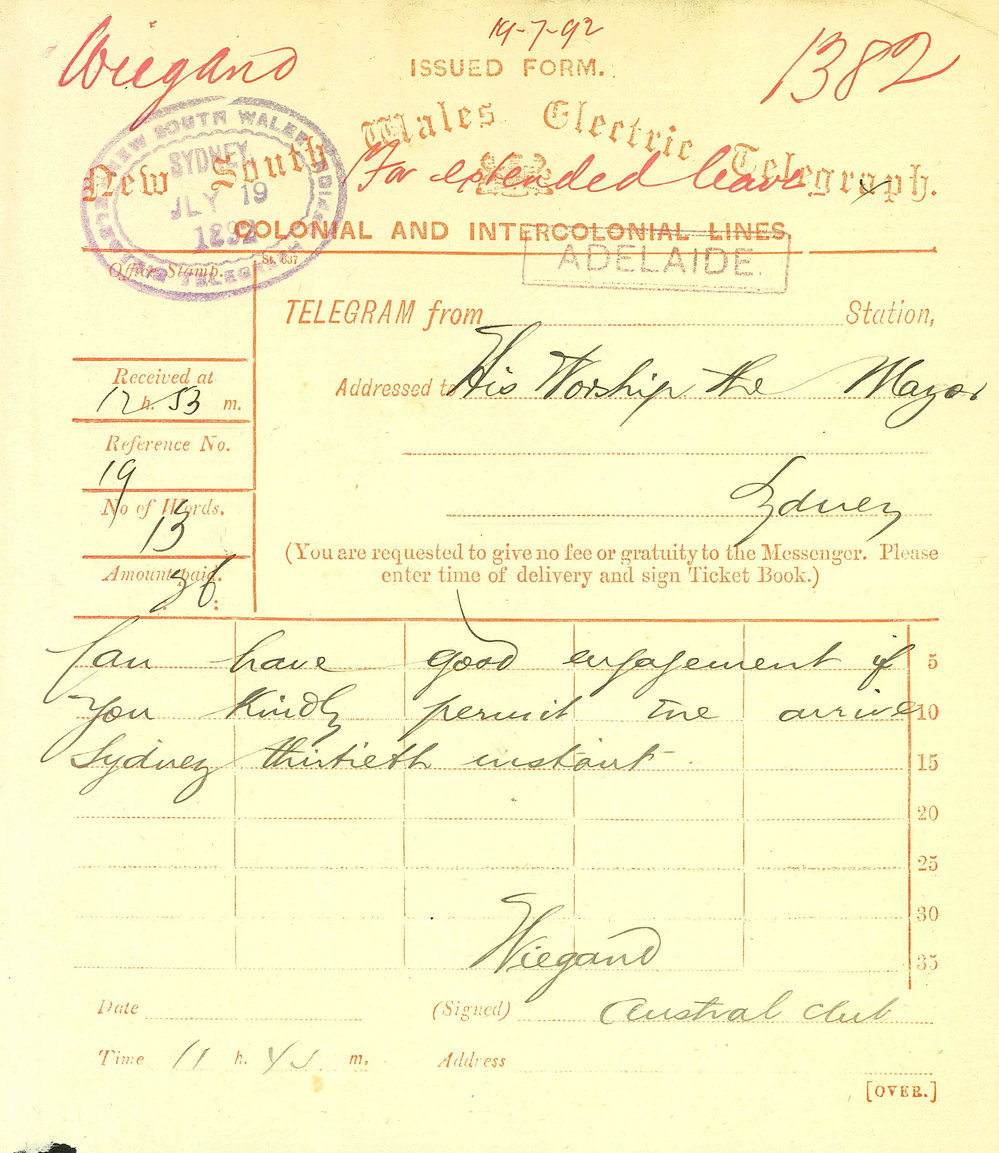 19-7-92
Wiegand
1382
ISSUED FORM.
New South Wales Electric Telegraph.
For extended leave
COLONIAL AND INTERCOLONIAL LINES
NEW SOUTH WALES
SYDNEY
JLY 19
1892
ADELAIDE.
Office Stamp.
St. 637
TELEGRAM from Station,
Received at
12 h. 53 m.
Addressed to His Worship the Mayor
Reference No.
19
Sydney
No of Words.
13
(You are requested to give no fee or gratuity to the Messenger. Please
enter time of delivery and sign Ticket Book.)
Amount paid.
: 3/6 :
Can have good engagement if 5
you Kindly permit me arrive 10
Sydney thirtieth instant 15
20
25
30
Wiegand 35
Date (Signed) Austral Club
Time 11 h. 45 m. Address
[OVER.]